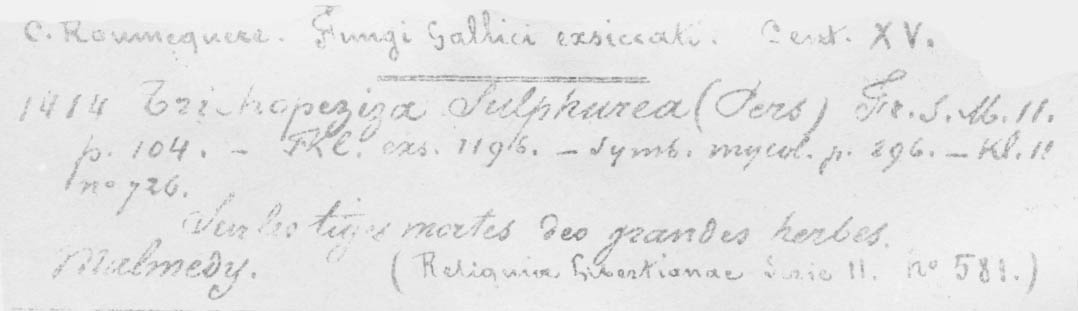 C. Roumeguere. Fungi Gallici exsiccati. Cent. XV.
1414 Trichopeziza Sulphurea (Pers) Fr. S. M. II.
p. 104. – Fkl. exs. 1196. – Symb. mycol. p. 296. – Kl. II
no 726.
Sur les tiges mortes des grandes herbes.
Malmedy. (Reliquiæ Libertianae Serie II. no 581.)